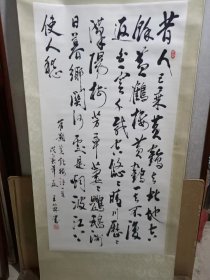 昔人已乘黄鶴去此地空
餘黄鶴樓黄鶴一去不復
返白雲千載空悠悠晴川歷歷
漢陽樹芳草萋萋鸚鵡洲
日暮鄉關何處是煙波江上
使人愁
崔顥黄鶴樓詩一首